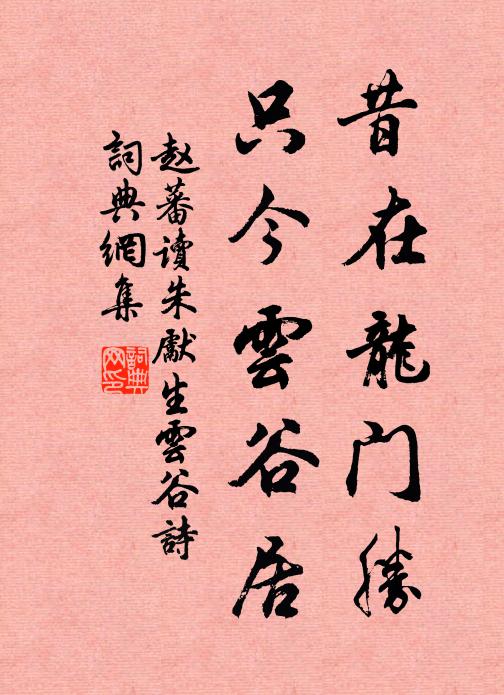 昔在龍门勝
只今雲谷居
赵蕃讀朱獻生雲谷詩
詞典網集
詞典網印